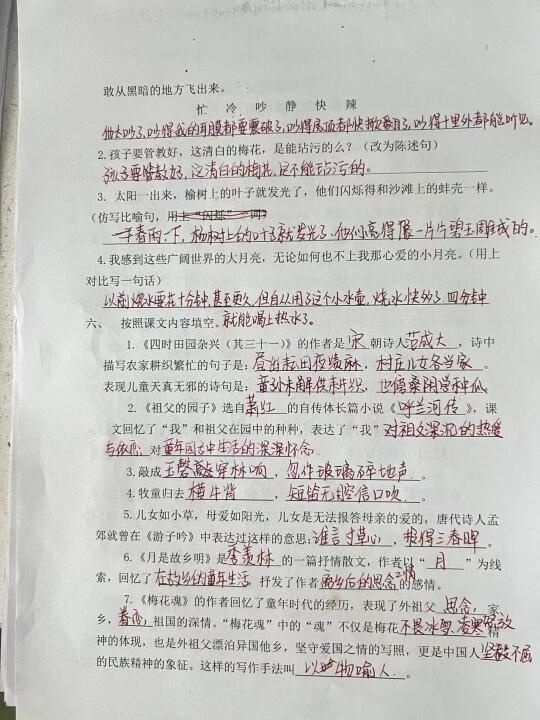 敢从黑暗的地方飞出来。
忙 冷 吵 静 快 辣
他太吵了,吵得我的耳膜都要震破了,吵得房顶都快掀翻了,吵得十里外都能听见。
2.孩子要管教好,这清白的梅花,是能玷污的么?(改为陈述句)
孩子要管教好,这清白的梅花,是不能玷污的。
3. 太阳一出来,榆树上的叶子就发光了,他们闪烁得和沙滩上的蚌壳一样。
(仿写比喻句,用上“闪烁”一词)
一春雨一下,杨树上的叶子就发光了,他们亮得跟一片片碧玉雕成的。
4.我感到这些广阔世界的大月亮,无论如何也不上我那心爱的小月亮。(用上
对比写一句话)
以前烧水要花十分钟,甚至更久,但自从用了这个小水壶,烧水快多了,四分钟
六、 按照课文内容填空。就能喝上热水了。
1.《四时田园杂兴(其三十一)》的作者是宋朝诗人范成大,诗中
描写农家耕织繁忙的句子是:昼出耘田夜绩麻,村庄儿女各当家。
表现儿童天真无邪的诗句是:童孙未解供耕织,也傍桑阴学种瓜。
2.《祖父的园子》选自萧红的自传体长篇小说《呼兰河传》,课
文回忆了“我”和祖父在园中的种种,表达了“我”对祖父深沉的热爱
与依恋,对童年园子中生活的深深怀念。
3.敲成玉磬穿林响,忽作玻璃碎地声。
4.牧童归去横牛背,短笛无腔信口吹。
5.儿女如小草,母爱如阳光,儿女是无法报答母亲的爱的,唐代诗人孟
郊就曾在《游子吟》中表达过这样的意思:谁言寸草心,报得三春晖。
6.《月是故乡明》是季羡林的一篇抒情散文,作者以“月”为线
索,回忆了在故乡的童年生活,抒发了作者离乡后的思念之情的感情。
7.《梅花魂》的作者回忆了童年时代的经历,表现了外祖父思念,家
乡,眷恋,祖国的深情。“梅花魂”中的“魂”不仅是梅花不畏冰雪,凌寒怒放精
神的体现,也是外祖父漂泊异国他乡,坚守爱国之情的写照,更是中国人坚毅不屈
的民族精神的象征。这样的写作手法叫以物喻人。